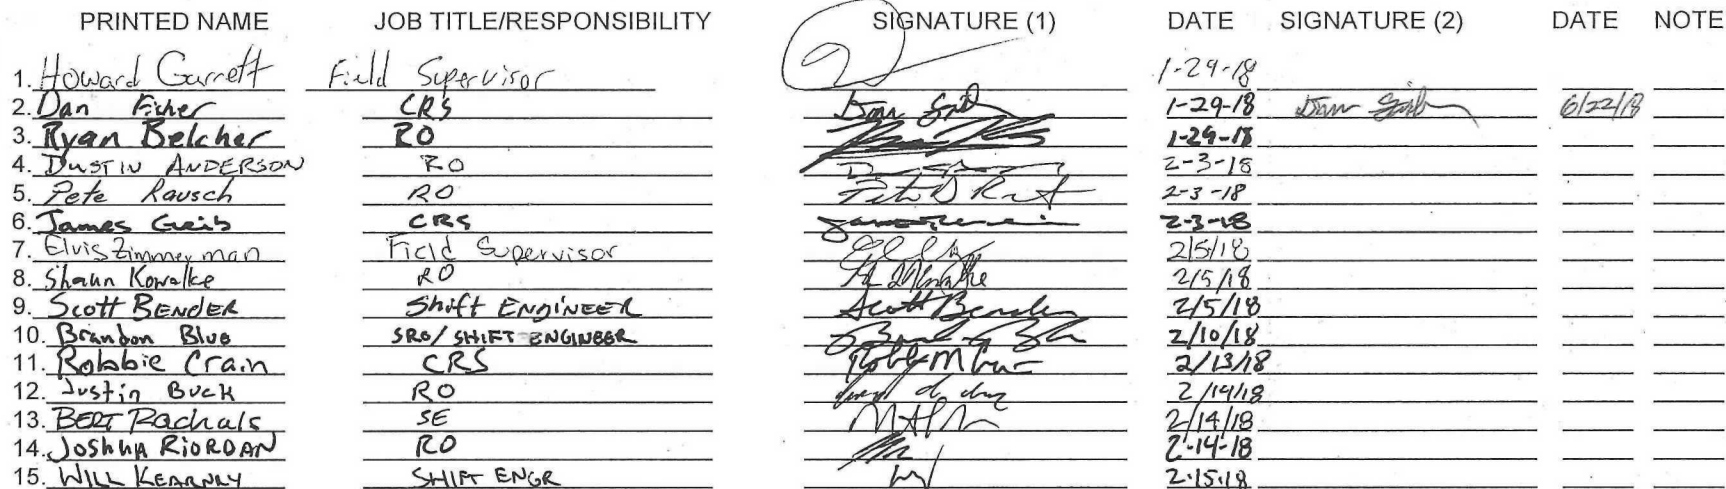 PRINTED NAME JOB TITLE/RESPONSIBILITY SIGNATURE (1) DATE SIGNATURE (2) DATE NOTE
1. Howard Garrett Field Supervisor 1-29-18
2. Dan Fisher CRS 1-29-18 6/22/18
3. Ryan Belcher RO 1-29-18
4. DUSTIN ANDERSON RO 2-3-18
5. Pete Rausch RO 2-3-18
6. James Geib CRS 2-3-18
7. Elvis Zimmerman Field Supervisor 2/5/18
8. Shaun Kowalke RO 2/5/18
9. Scott BENDER Shift ENGINEER Scott Bender 2/5/18
10. Brandon Blue SRO/SHIFT ENGINEER 2/10/18
11. Robbie Crain CRS 2/13/18
12. Justin Buck RO 2/14/18
13. BERT Rachals SE 2/14/18
14. JOSHUA RIORDAN RO 2-14-18
15. WILL KEARNEY SHIFT ENGR 2-15-18